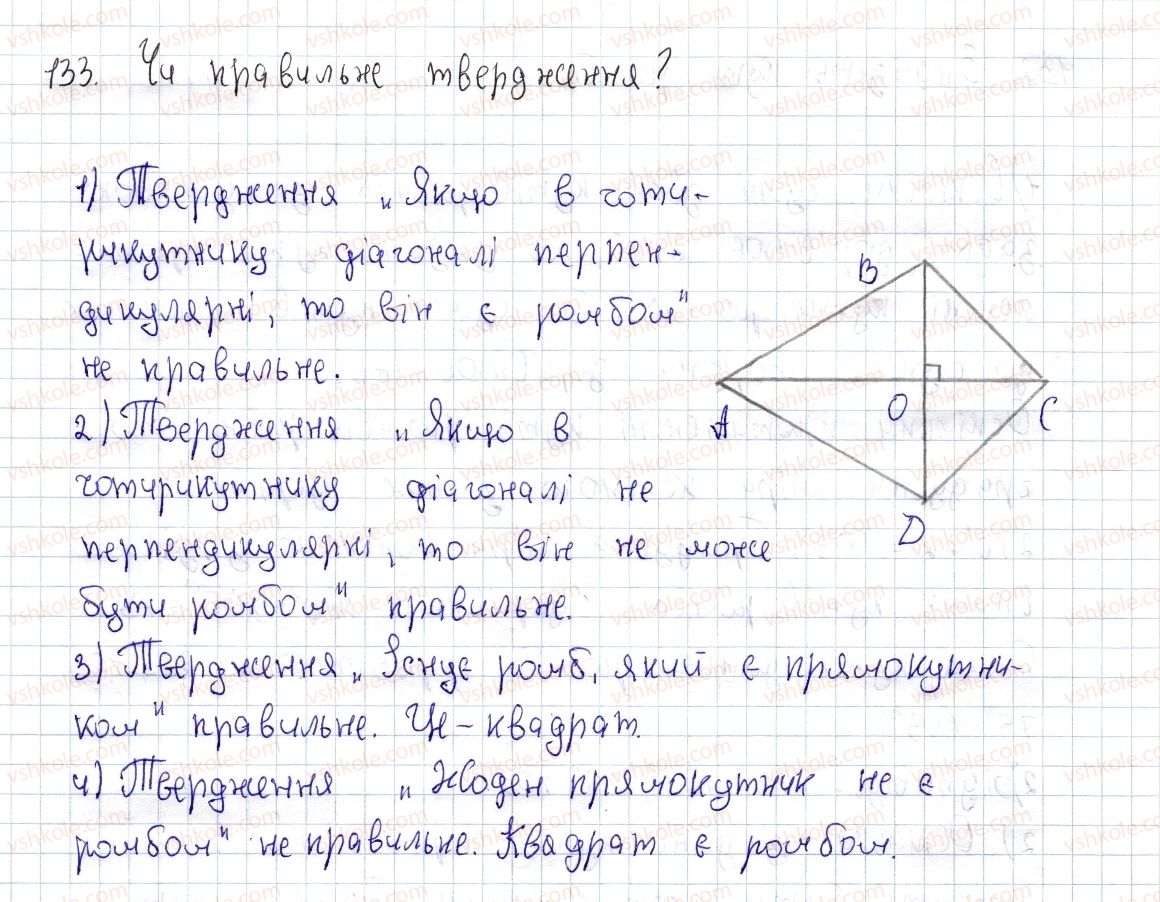 133. Чи правильне твердження?
1) Твердження „Якщо в чоти-
рикутнику діагоналі перпен-
дикулярні, то він є ромбом"
не правильне.
2) Твердження „Якщо в
чотирикутнику діагоналі не
перпендикулярні, то він не може
бути ромбом" правильне.
3) Твердження „Існує ромб, який є прямокутни-
ком" правильне. Це – квадрат.
4) Твердження „Жоден прямокутник не є
ромбом" не правильне. Квадрат є ромбом.
B
A
O
C
D
vshkole.com